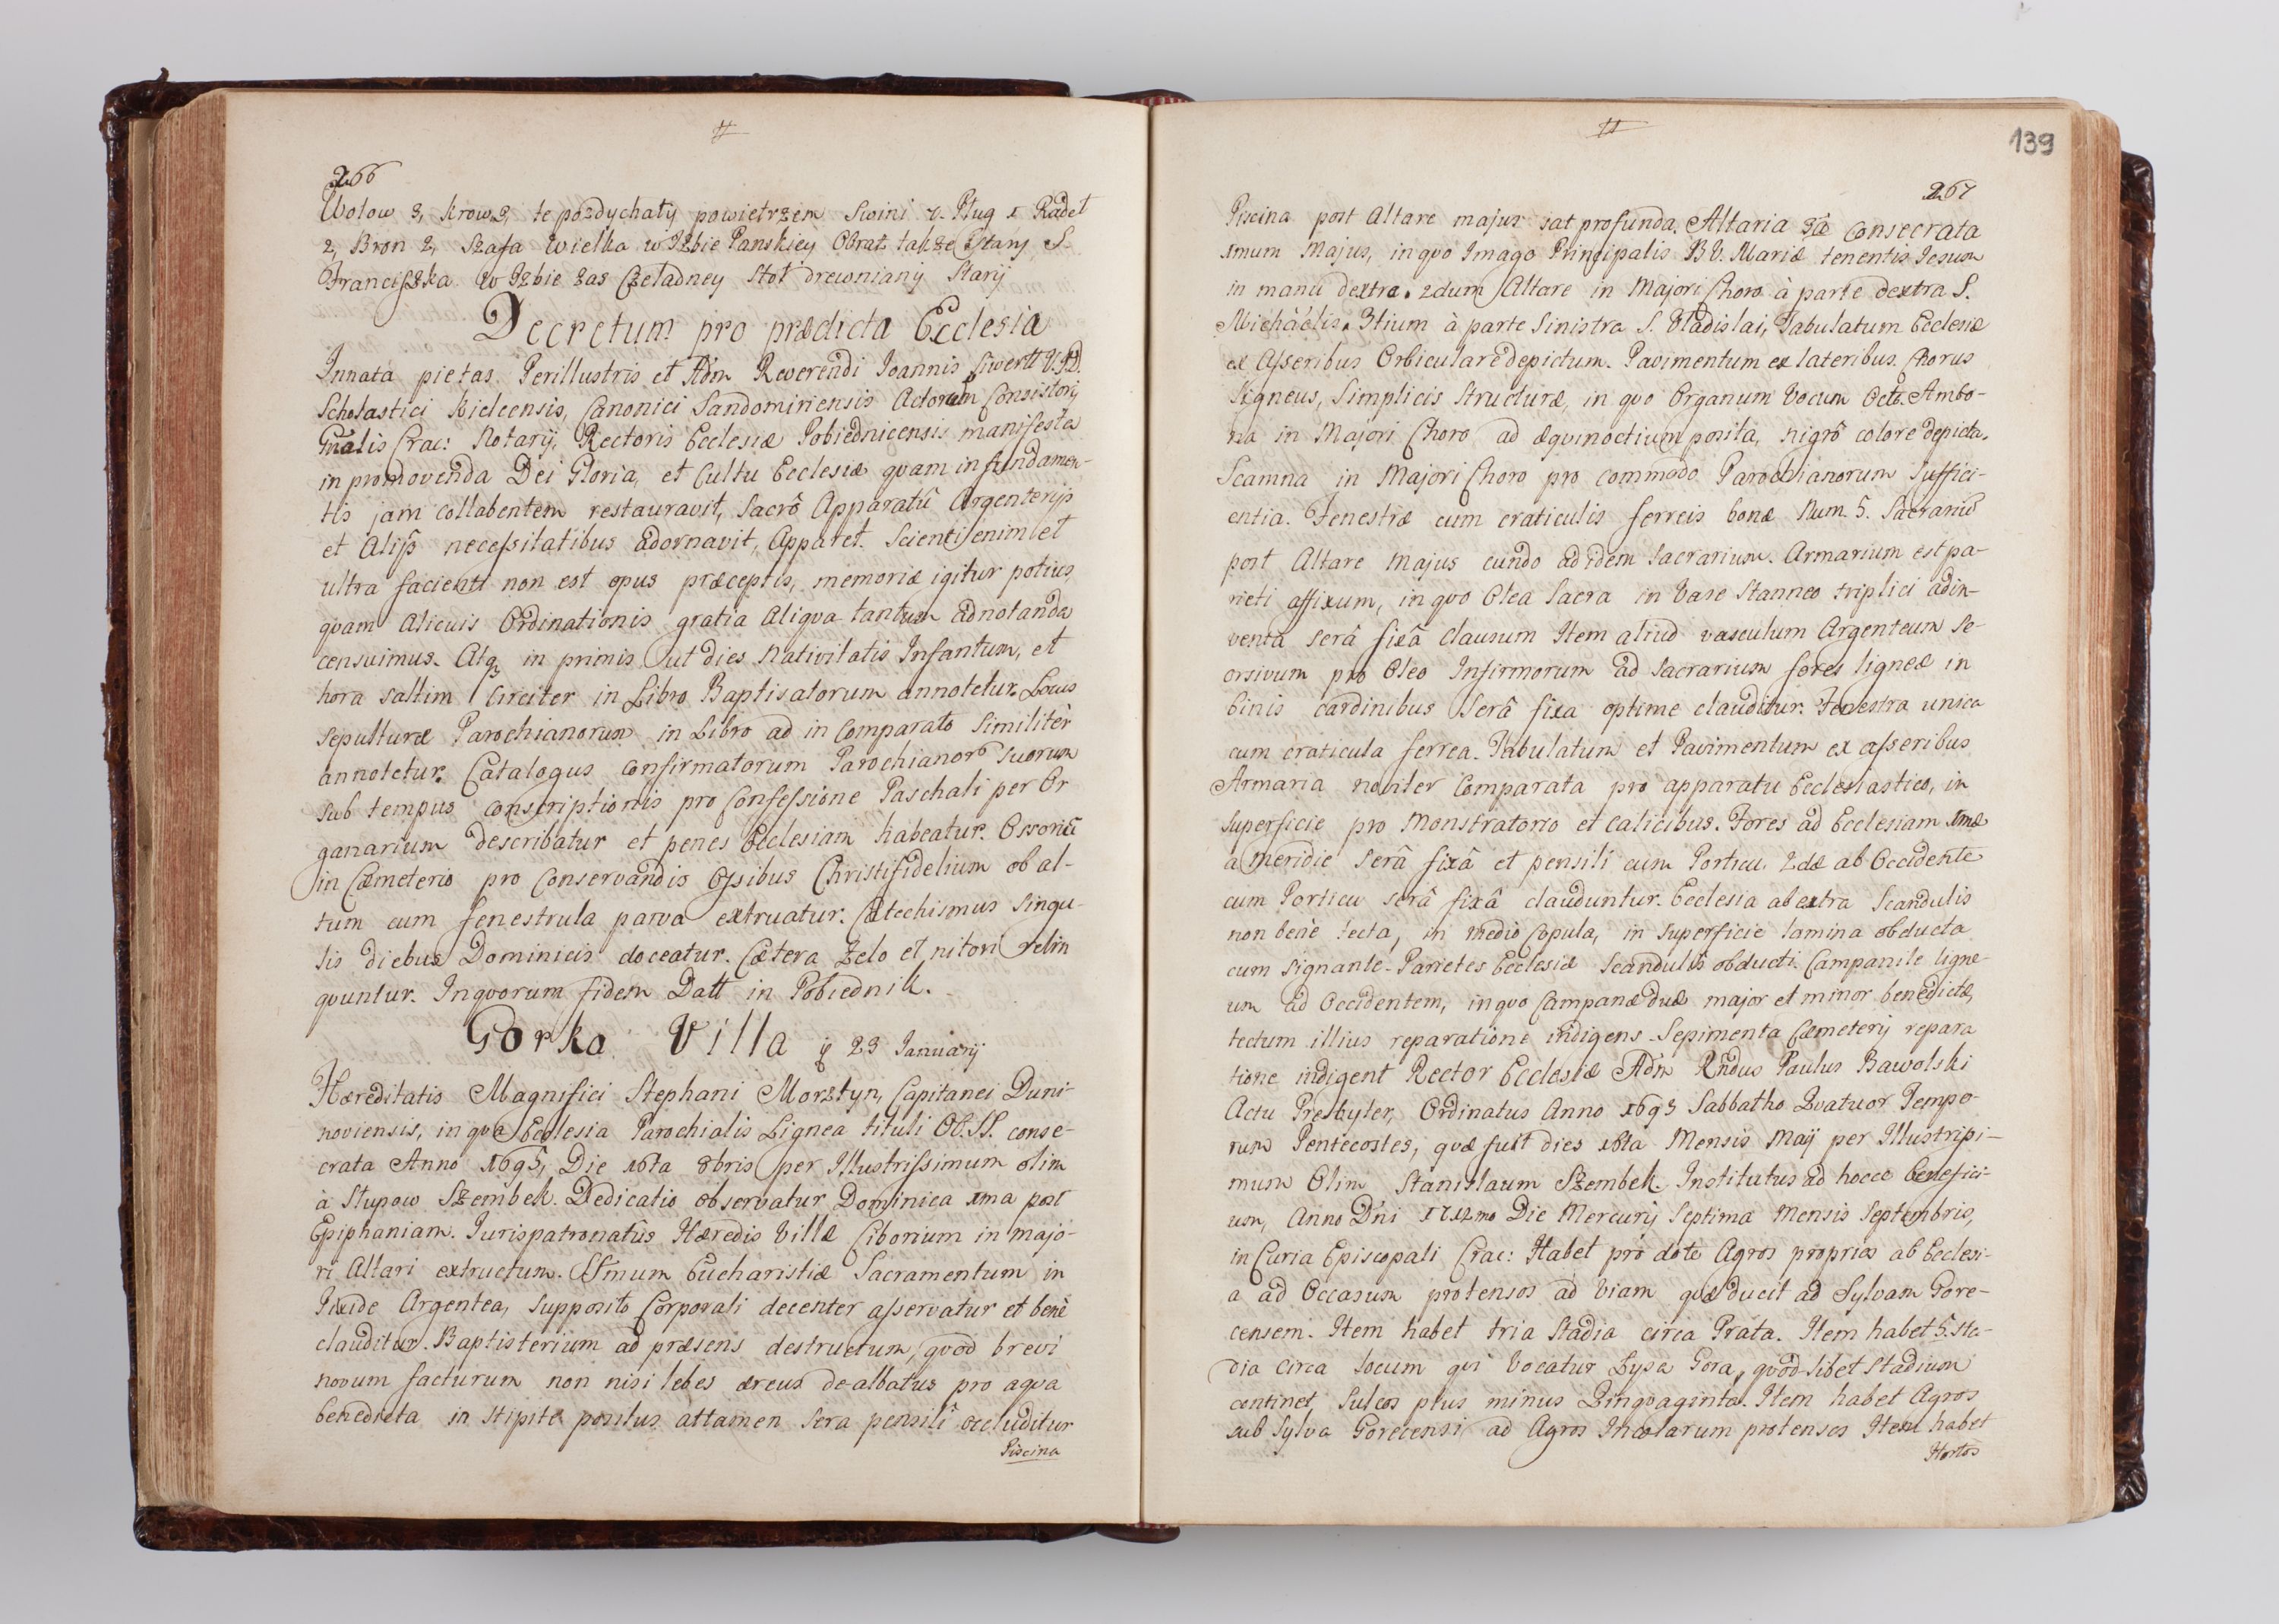 266
Wołow 3, krow 3, te pozdychały powietrzem Swini 7. Pług 1 Radeł
2, Bron 2, Szafa wielka w Izbie Panskiey Obraz także Stary S.
Franciszka w Izbie zas Czeladney Stoł drewniany Stary
Decretum pro prædicta Ecclesia
Innata pietas Perillustris et Adm Reverendi Joannis Siwertt U.J.D.
Scholastici Kielcensis, Canonici Sandomiriensis Actorum Consistorij
Gnalis Crac: Notarij, Rectoris Ecclesiæ Pobiednicensis manifesta
in promovenda Dei Gloria, et Cultu Ecclesiæ qvam in fundamen-
tis jam collabentem restauravit, Sacrô Apparatû Argenterijs
et Alijs necessitatibus adornavit, Apparet. Scienti enim et
ultra facienti non est opus præceptis, memoriæ igitur potius
qvam alicuis Ordinationis gratia aliqva tantum adnotanda
censuimus. Atq in primis ut dies Nativitatis Infantum, et
hora saltim circiter in Libro Baptisatorum annotetur. Locus
sepulturæ Parochianorum in Libro ad in comparato similitèr
annotetur. Catalogus confirmatorum Parochianorô suorum
sub tempus conscriptionis pro Confessione Paschali per Or
ganarium describatur et penes Ecclesiam habeatur. Ossoriũ
in Cæmeterio pro Conservandis Ossibus Christifidelium ob al-
tum cum fenestrula parva extruatur. Catechismus singu-
lis diebus Dominicis doceatur. Cætera Zelo et nitori relin
qvuntur. Inqvorum fidem Datt in Pobiednik.
Gorka Villa 23 Januarij
Hæreditatis Magnifici Stephani Morsztyn, Capitanei Duni-
noviensis, in qva Ecclesia Parochialis Lignea tituli OO.SS. conse-
crata Anno 1695, Die 16ta 8bris per Illustrissimum olim
à Stupow Szembek. Dedicatio observatur Dominica 1ma post
Epiphaniam. Jurispatronatûs Hæredis Villæ Ciborium in majo-
ri Altari extructum. SSmum Eucharistiæ Sacramentum in
Pixide Argentea, supposito Corporali decenter asservatur et benè
clauditur. Baptisterium ad præsens destructum, qvod brevi
novum facturum non nisi lebes æreus de-albatus pro aqva
benedicta in stipite positus attamen sera pensilî occluditur
Piscina
139
267
Piscina post Altare majus sat profunda. Altaria 3â Consecrata
1mum Majus, in qvo Imago Principalis B.V. Mariæ tenentis Jesum
in manu dextra. 2dum Altare in Majori Choro à parte dextra S.
Michàélis. 3tium à parte Sinistra S. Vladislai, Tabulatum Ecclesiæ
ex Asseribus Orbiculare depictum. Pavimentum ex lateribus. Chorus
Ligneus, Simplicis Structuræ, in qvo Organum Vocum Octo. Ambo-
na in Majori Choro ad æqvinoctium posita, nigrô colore depicta.
Scamna in Majori Choro pro commodo Parochianorum Suffici-
entia. Fenestræ cum craticulis ferreis bonæ Num. 5. Sacrariũ
post Altare majus eundo ad idem Sacrarium. Armarium est pa-
rieti affixum, in qvo Olea Sacra in Vase Stanneo triplici adin-
venta serâ fixâ clausum Item aliud vasculum Argenteum Se-
orsivum pro Oleo Infirmorum ad Sacrarium fores ligneæ in
binis cardinibus Serâ fixa optime clauditur. Fenestra unica
cum craticula ferrea. Tabulatum et Pavimentum ex asseribus
Armaria noviter Comparata pro apparatu Ecclesiastico, in
superficie pro Monstratorio et calicibus. Fores ad Ecclesiam 1mæ
a meridie Serâ fixâ et pensili cum Porticu. 2dæ ab Occidente
cum Porticu serâ fixâ clauduntur. Ecclesia ab extra Scandulis
non benè tecta, in medio Copula, in superficie lamina obducta
cum signante. Parietes Ecclesiæ Scandulis obducti. Campanile ligne-
um ad Occidentem, in qvo Campanæ duæ major et minor benedictæ,
tectum illius reparatione indigens. Sepimenta Cæmeterij repara
tione indigent Rector Ecclesiæ Adm Rndus Paulus Bawolski
Actu Presbyter, Ordinatus Anno 1693 Sabbatho Qvatuor Tempo-
rum Pentecostes, qvæ fuit dies 16ta Mensis Maij per Illustrissi-
mum Olim Stanislaum Szembek. Institutus ad hocce benefici-
um, Anno Dni 1712mo Die Mercurij Septima Mensis Septembris,
in Curia Episcopali Crac: Habet pro dote Agros proprios ab Ecclesi-
a ad Occasum protensos ad Viam qvæ ducit ad Sylvam Gore-
censem. Item habet tria Stadia circa Prata. Item habet 5. Sta-
dia circa locum qvi Vocatur Łysa Gora, qvod-libet Stadium
continet Sulcos plus minus Qvinqvaginta. Item habet Agros
sub Sylva Gorecensi ad Agros Incolarum protensos Item habet
Hortos